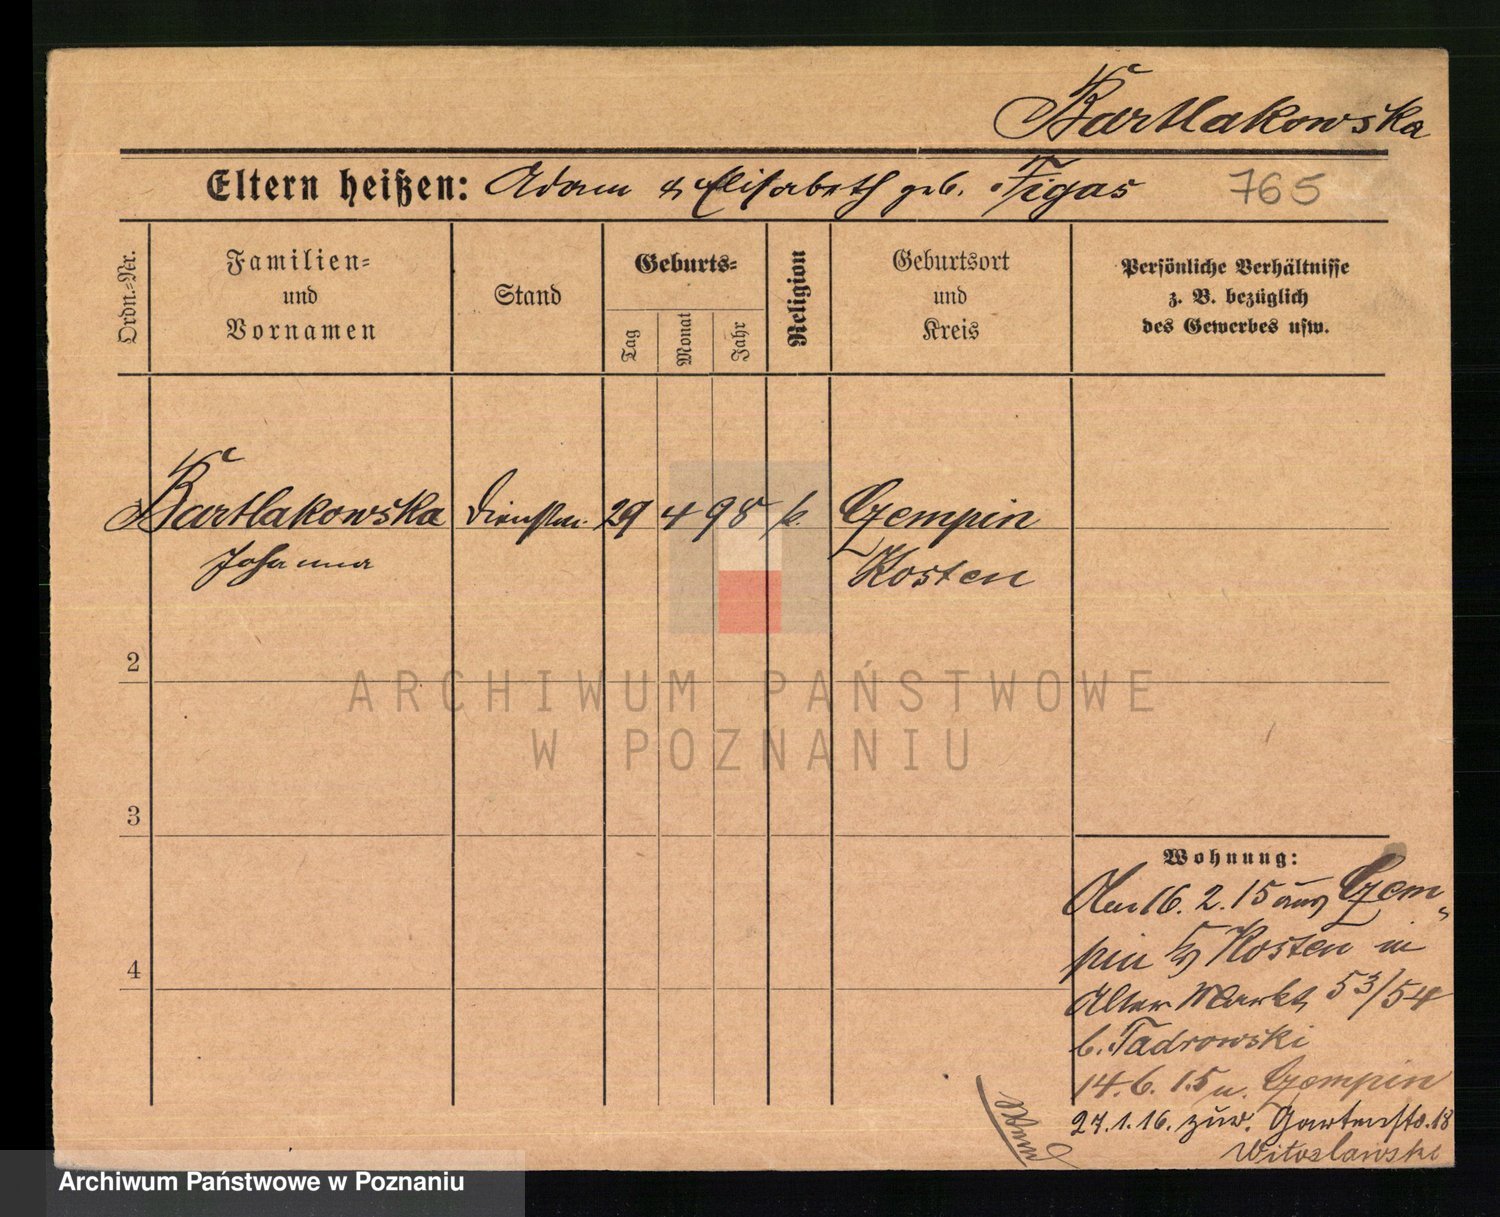 Bartlakowska
Eltern heißen: Adam & Elisabeth geb. Figas 765
Ordn.-Nr.
Familien-
und
Vornamen
Stand
Geburts-
Tag
Monat
Jahr
Religion
Geburtsort
und
Kreis
Persönliche Verhältnisse
z. B. bezüglich
des Gewerbes usw.
1 Bartlakowska Dienstm. 29 4 98 k. Czempin
Johanna Kosten
2
3
4
ARCHIWUM PAŃSTWOWE
W POZNANIU
Wohnung:
Am 16. 2. 15 aus Czem-
pin Kr Kosten in
Alter Markt 53/54
b. Tadrowski
14. 6. 15 n. Czempin
27. 1. 16. zur. Gartenstr. 18
Witoslawski
Archiwum Państwowe w Poznaniu